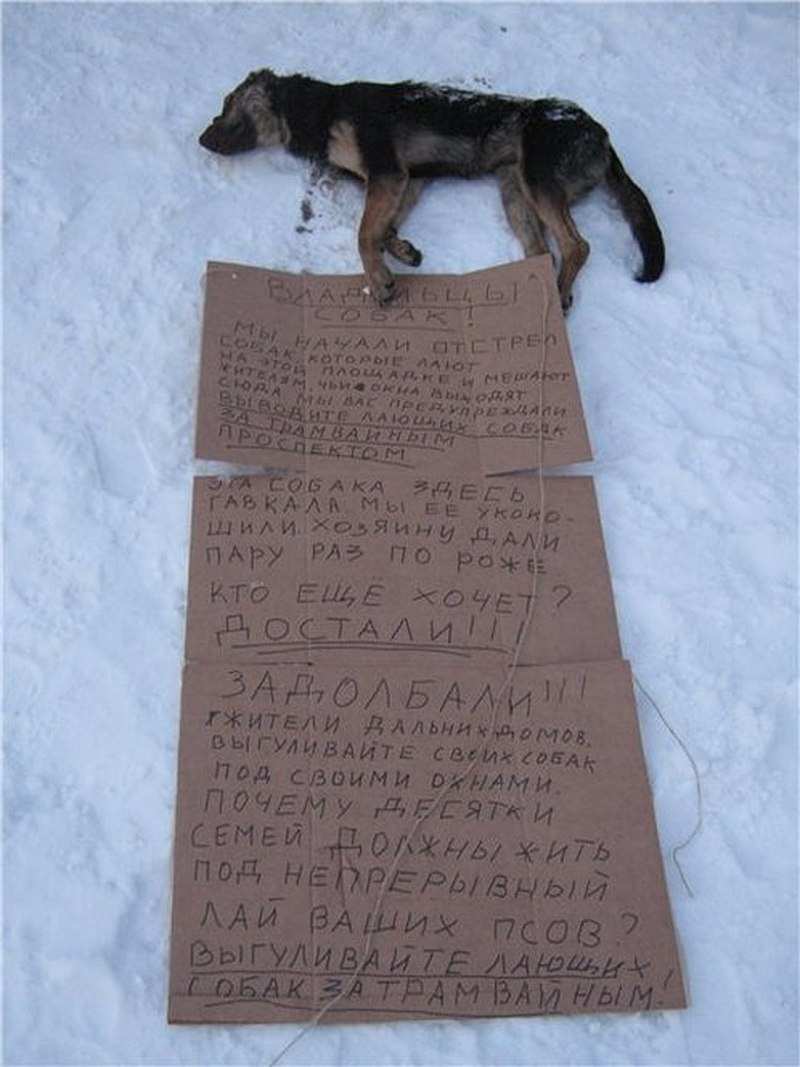 ВЛАДЕЛЬЦЫ
СОБАК!
МЫ НАЧАЛИ ОТСТРЕЛ
СОБАК, КОТОРЫЕ ЛАЮТ
НА ЭТОЙ ПЛОЩАДКЕ И МЕШАЮТ
ЖИТЕЛЯМ, ЧЬИ ОКНА ВЫХОДЯТ
СЮДА. МЫ ВАС ПРЕДУПРЕЖДАЛИ
ВЫВОДИТЕ ЛАЮЩИХ СОБАК
ЗА ТРАМВАЙНЫМ
ПРОСПЕКТОМ
ЭТА СОБАКА ЗДЕСЬ
ГАВКАЛА МЫ ЕЕ УКОКО-
ШИЛИ ХОЗЯИНУ ДАЛИ
ПАРУ РАЗ ПО РОЖЕ
КТО ЕЩЁ ХОЧЕТ?
ДОСТАЛИ!!!
ЗАДОЛБАЛИ!!!
ЖИТЕЛИ ДАЛЬНИХ ДОМОВ,
ВЫГУЛИВАЙТЕ СВОИХ СОБАК
ПОД СВОИМИ ОКНАМИ.
ПОЧЕМУ ДЕСЯТКИ
СЕМЕЙ ДОЛЖНЫ ЖИТЬ
ПОД НЕПРЕРЫВНЫЙ
ЛАЙ ВАШИХ ПСОВ?
ВЫГУЛИВАЙТЕ ЛАЮЩИХ
СОБАК ЗА ТРАМВАЙНЫМ!